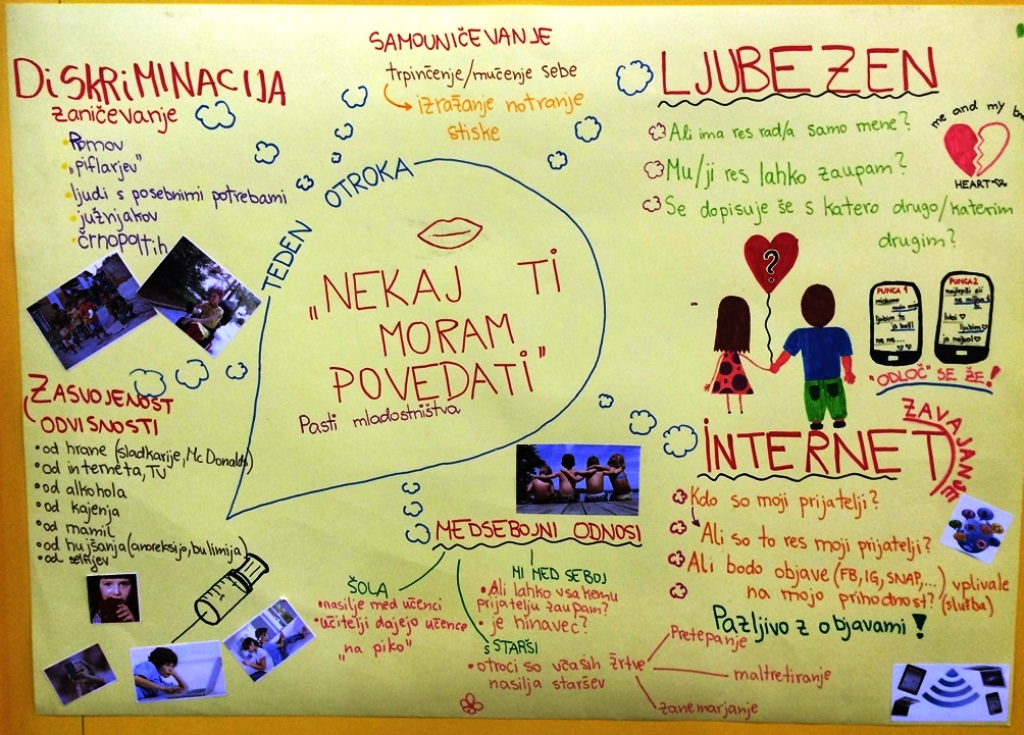 DiSKRiMINACIJA
zaničevanje
• Romov
• „piflarjev"
• ljudi s posebnimi potrebami
• južnjakov
• črnopoltih
SAMOUNIČEVANJE
trpinčenje/mučenje sebe
izražanje notranje
stiske
LJUBEZEN
Ali ima res rad/a samo mene?
Mu/ji res lahko zaupam?
Se dopisuje še s katero drugo/katerim
drugim?
me and my
HEART
?
PUNCA 1
ljubim te
ne ne...
PUNCA 2
ljubim
"ODLOČ" SE ŽE!
TEDEN OTROKA
„NEKAJ TI
MORAM
POVEDATi"
Pasti mladostništva
ZASVOJENOST
ODVISNOSTI
• od hrane (sladkarije, Mc Donalds)
• od interneta, TV
• od alkohola
• od kajenja
• od mamil
• od hujšanja (anoreksijo, bulimija)
• od selfijev
MEDSEBOJNI ODNOSI
ŠOLA
• nasilje med učenci
• učitelji dajejo učence
„na piko"
MI MED SEBOJ
• Ali lahko vsakemu
prijatelju zaupam?
• je hinavec?
S STARŠI
• otroci so včasih žrtve
nasilja staršev
Pretepanje
maltretiranje
zanemarjanje
iNTERNET
ZAVAJANJE
Kdo so moji prijatelji?
Ali so to res moji prijatelji?
Ali bodo objave (FB, IG, SNAP,...) vplivale
na mojo prihodnost? (služba)
Pazljivo z objavami!